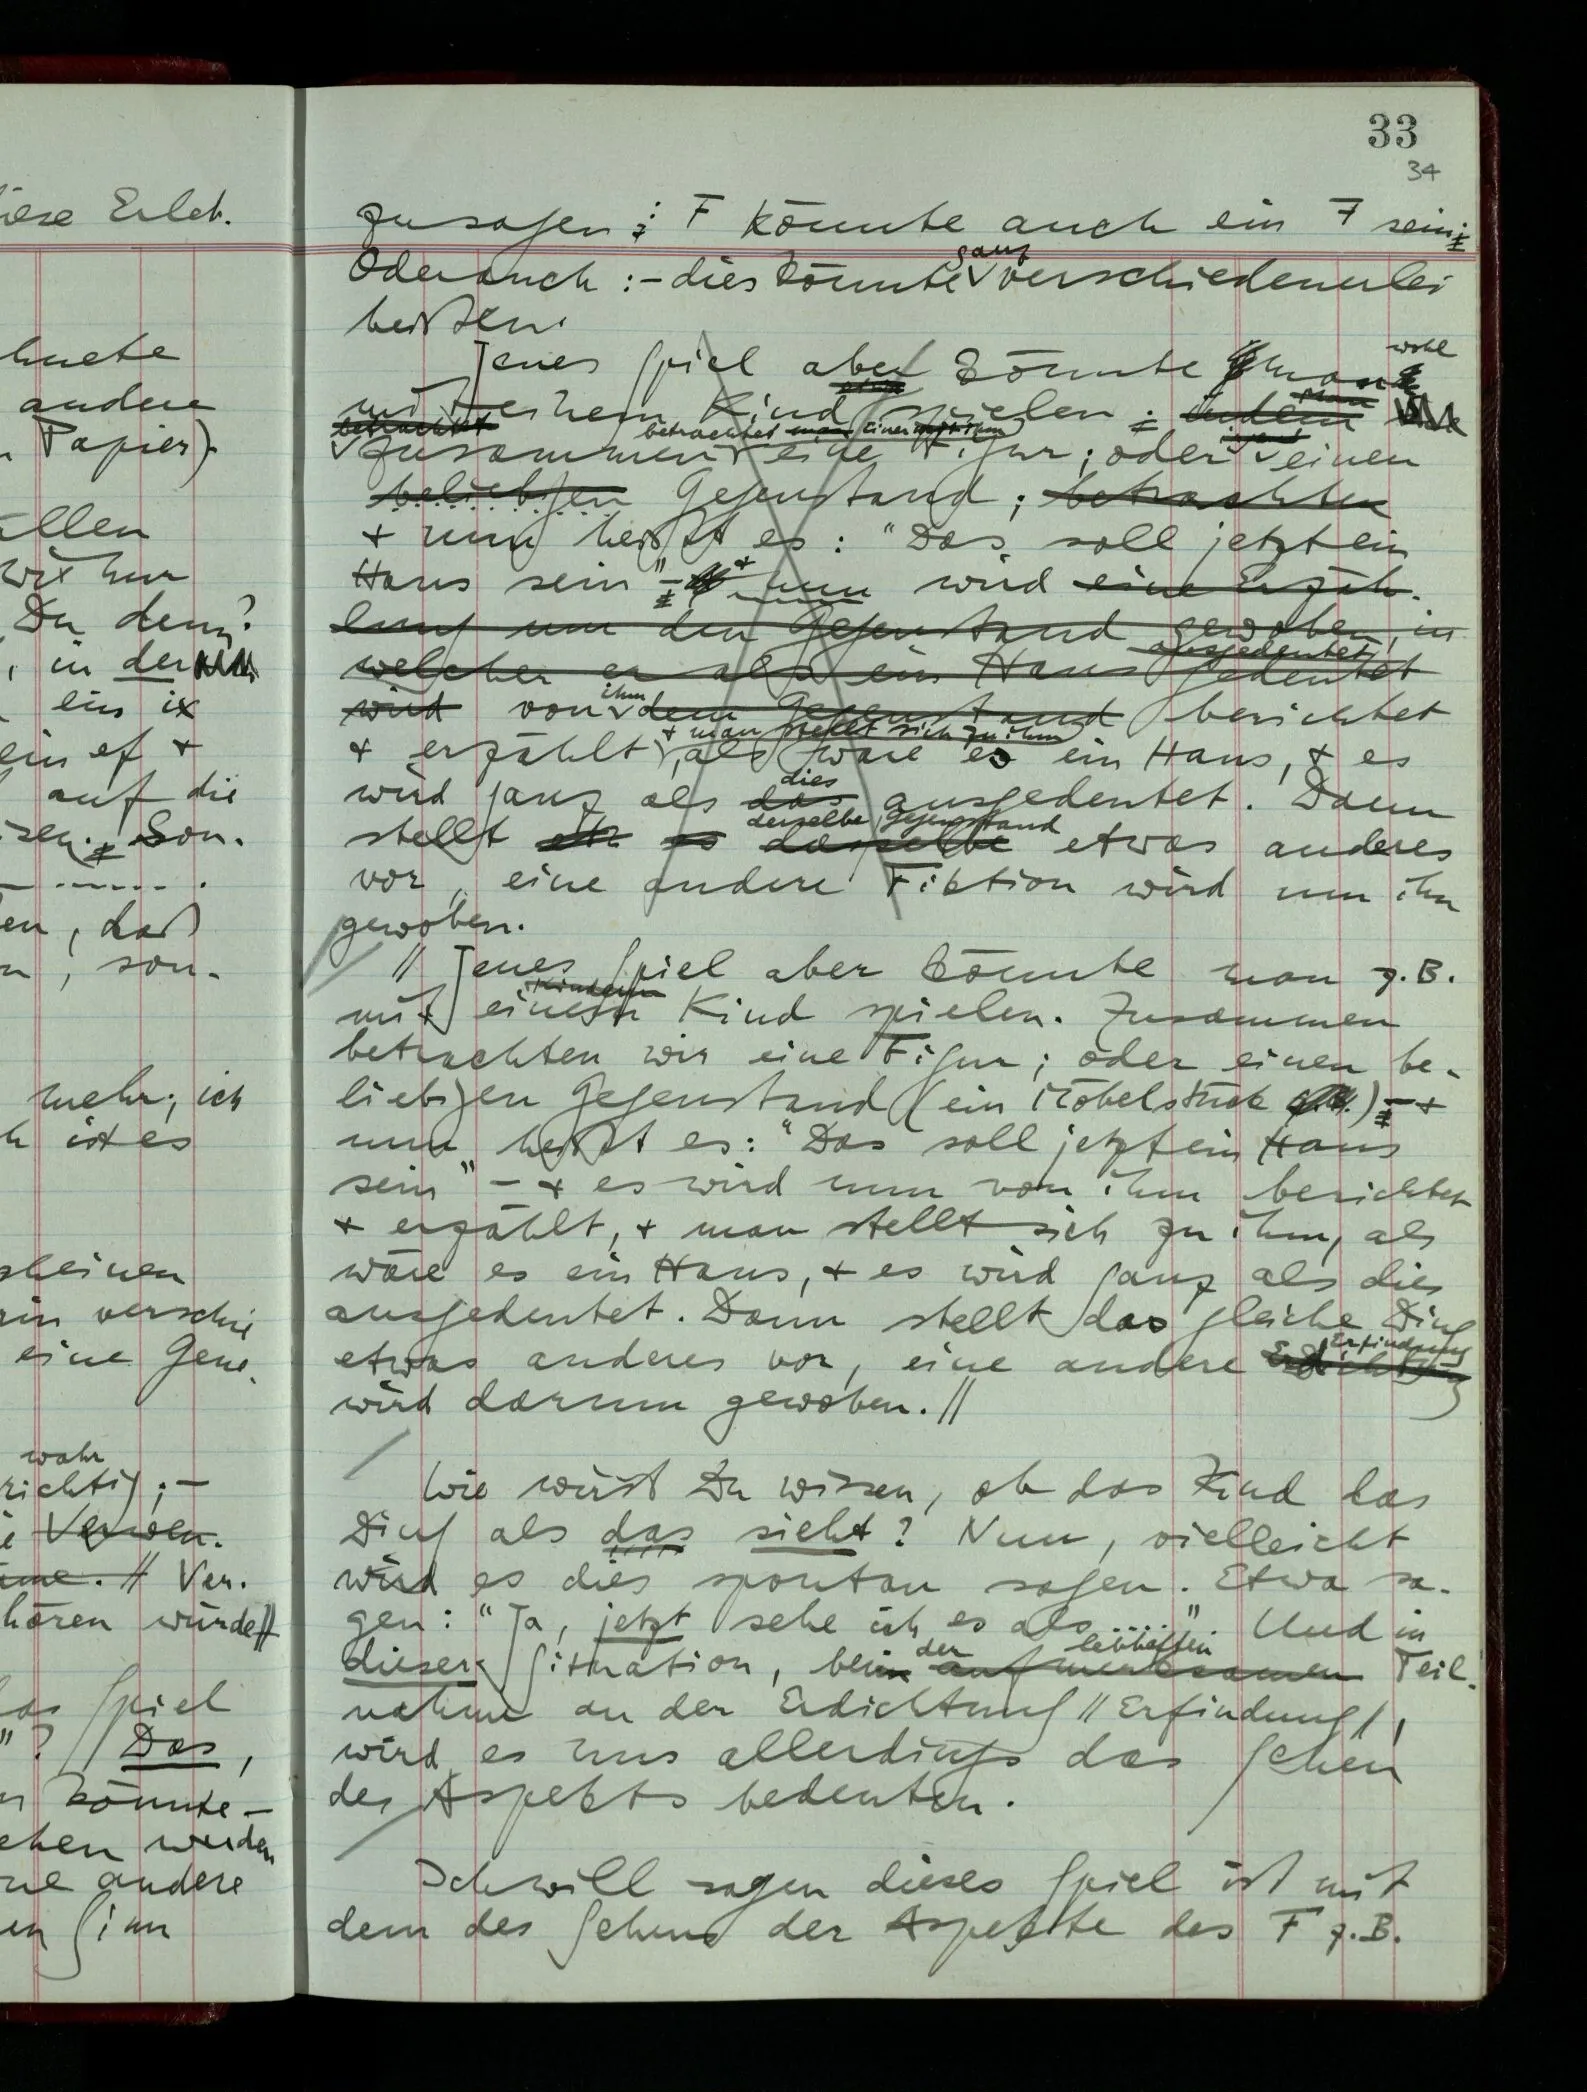 33
34
iese Erleb.
hnete
andere
Papier).
ällen
wir nur
Du denn?
, in der
ein ix
ein ef +
auf die
sen. Son.
en, daß
n, son-
mehr; ich
h ist es
scheinen
rin verschie
eine Gene.
wahr
richtig; –
Verwen.
ame. // Ver.
hören würde//
das Spiel
"? // Das,
könnte –
ehen werden
ne andere
en Sinn
zu sagen: F könnte auch ein 7 sein;
Oder auch: – dies könnte ganz verschiedenerlei
heißen.
Jenes Spiel aber könnte man wohl
mit einem Kind spielen: indem
betrachtet betrachtet man einer mit ihm
zusammen eine Figur; oder irgend einen
beliebigen Gegenstand; betrachten
+ nun heißt es: "Das soll jetzt ein
Haus sein" – + nun wird eine Erzäh-
lung um den Gegenstand gewoben, in
welcher er als ein Haus gedeutet ausgedeutet
wird von ihm dem Gegenstand berichtet
+ erzählt + man stellt sich zu ihm, als wäre es ein Haus, + es
wird ganz als das dies ausgedeutet. Dann
stellt es dasselbe derselbe Gegenstand etwas anderes
vor, eine andere Fiktion wird um ihn
gewoben.
// Jenes Spiel aber könnte man z.B.
mit Kindern einem Kind spielen. Zusammen
betrachten wir eine Figur; oder einen be-
liebigen Gegenstand (ein Möbelstück) – +
nun heißt es: "Das soll jetzt ein Haus
sein" – + es wird nun von ihm berichtet
+ erzählt, + man stellt sich zu ihm, als
wäre es ein Haus, + es wird ganz als dies
ausgedeutet. Dann stellt das gleiche Ding
etwas anderes vor, eine andere Erdichtung Erfindung
wird darum gewoben. //
Wie wirst Du wissen, ob das Kind das
Ding als das sieht? Nun, vielleicht
wird es dies spontan sagen. Etwa sa-
gen: "Ja, jetzt sehe ich es als ...." Und in
dieser Situation, bei der aufmerksamen lebhaften Teil-
nahme an der Erdichtung // Erfindung /,
wird es uns allerdings das Sehen
des Aspekts bedeuten.
Ich will sagen dieses Spiel ist mit
dem des Sehens der Aspekte des F z.B.